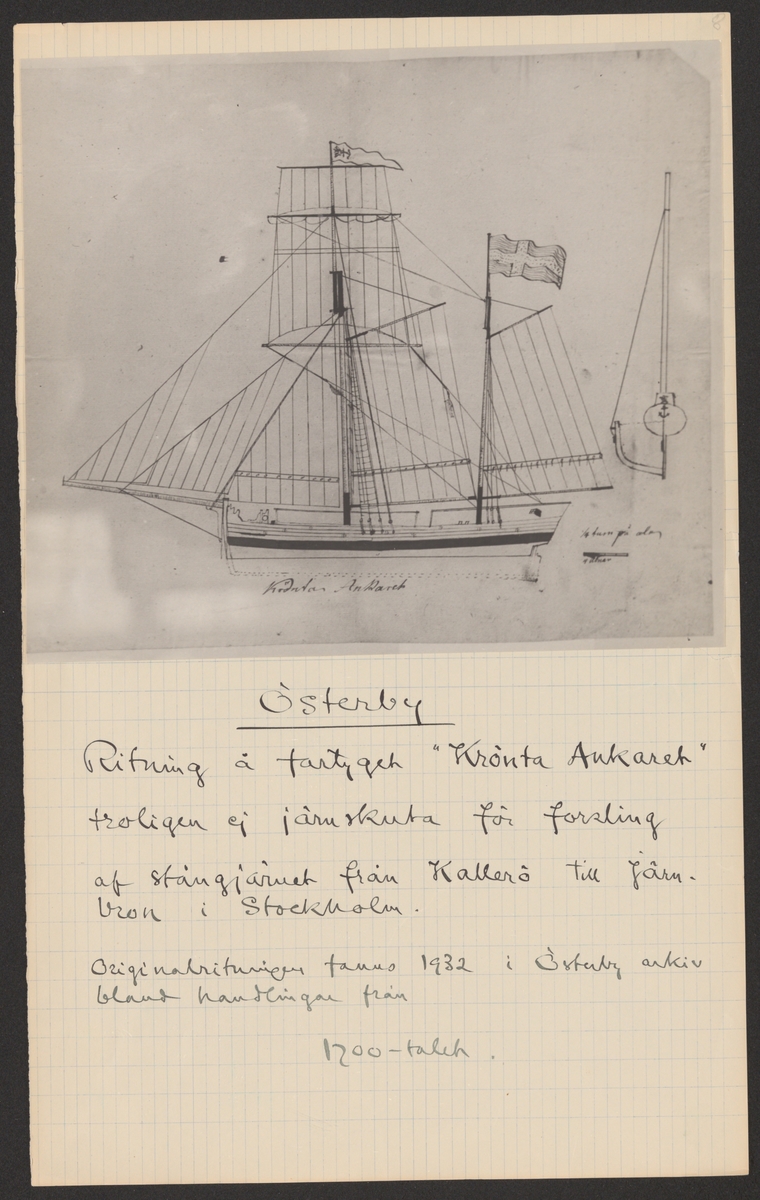 8
Krönta Ankaret
Österby
Ritning å fartyget "Krönta Ankaret"
troligen ej järnskuta för forsling
af stångjärnet från Kallerö till Järn-
bron i Stockholm.
Originalritningen fanns 1932 i Österby arkiv
bland handlingar från
1700-talet.